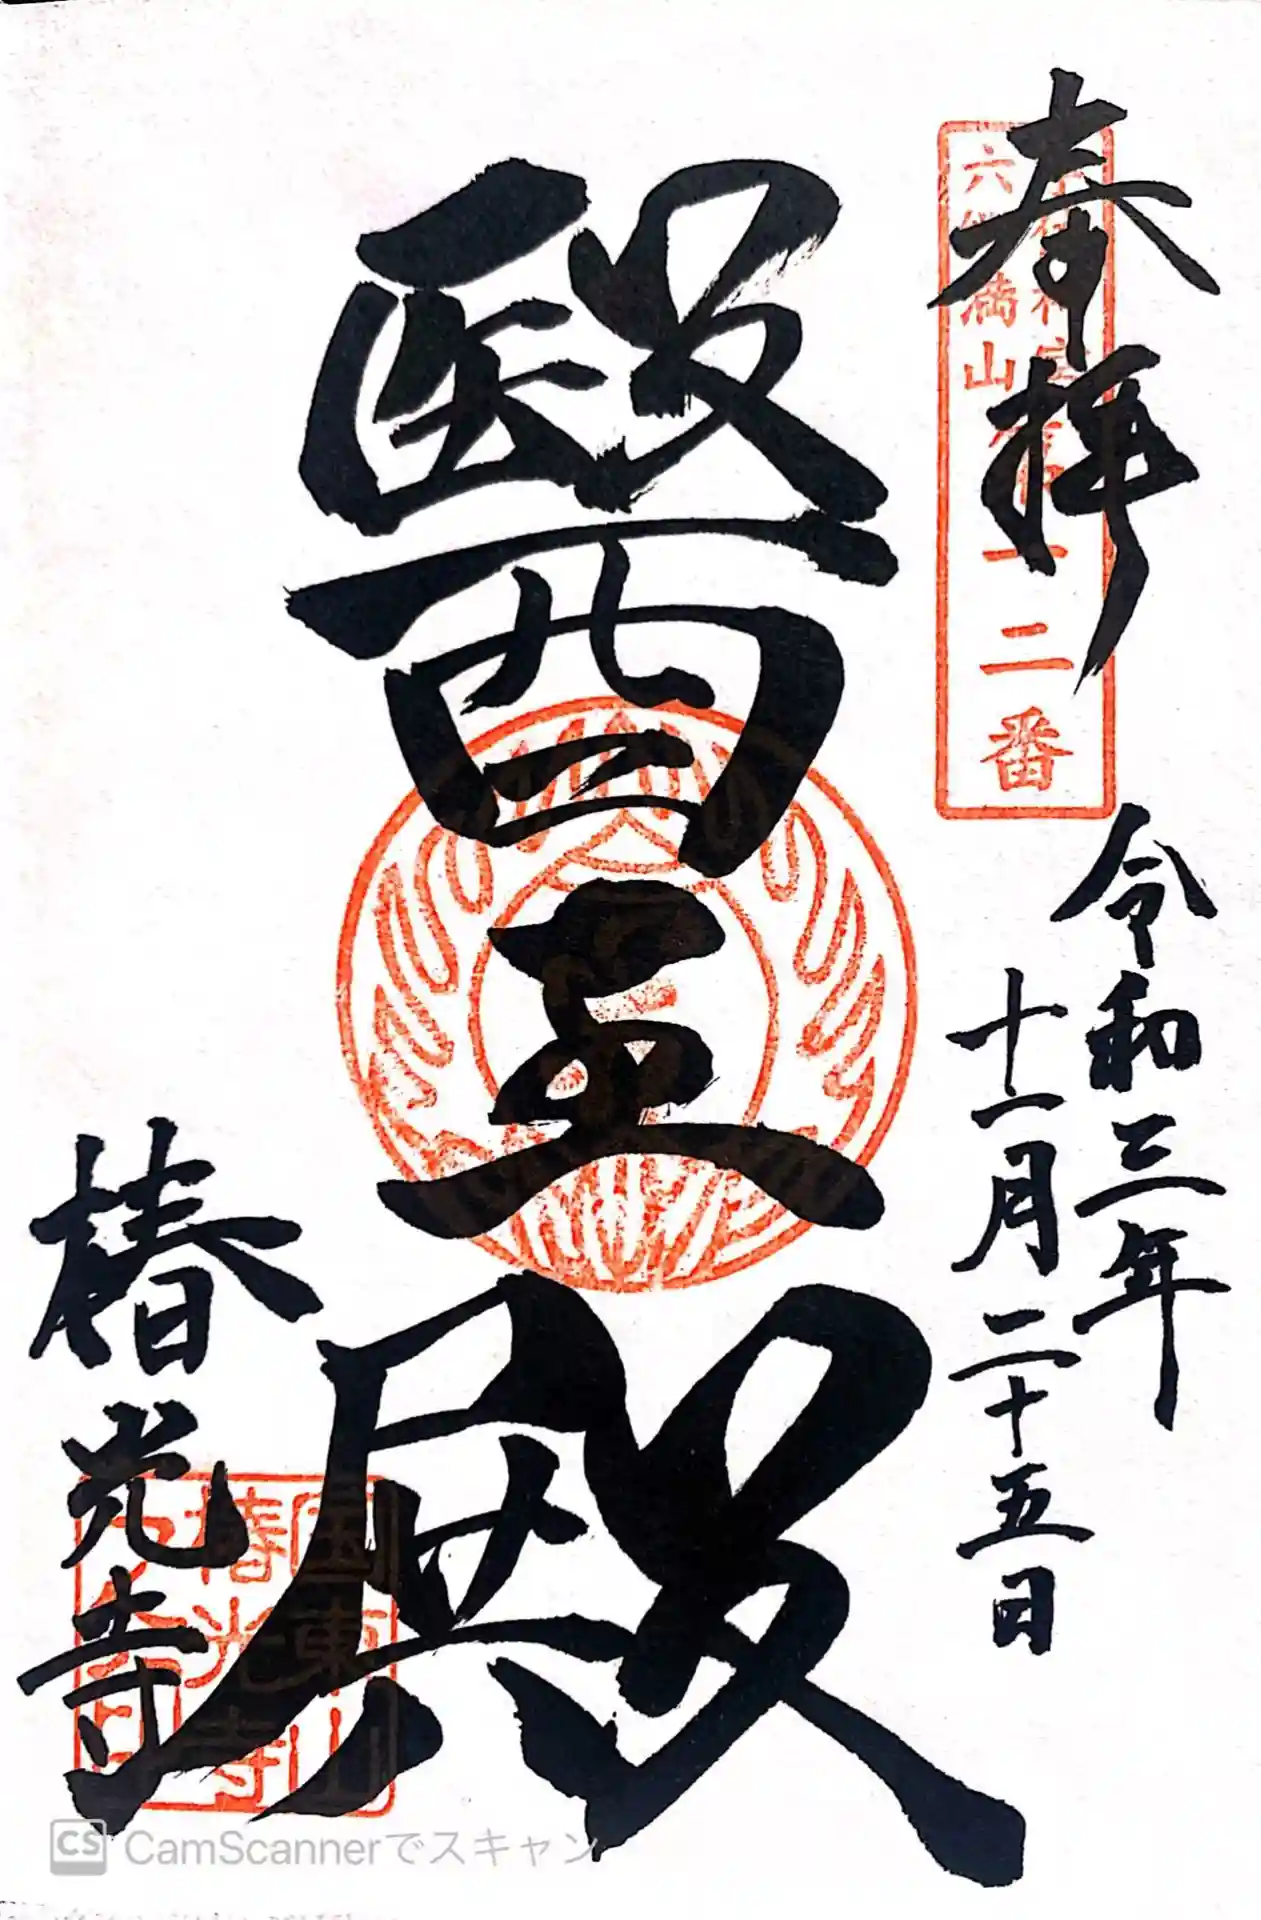 奉拝
六郷満山
十二番
令和三年
十一月二十五日
醫王殿
椿光寺
国東山
椿光寺
CS CamScannerでスキャン